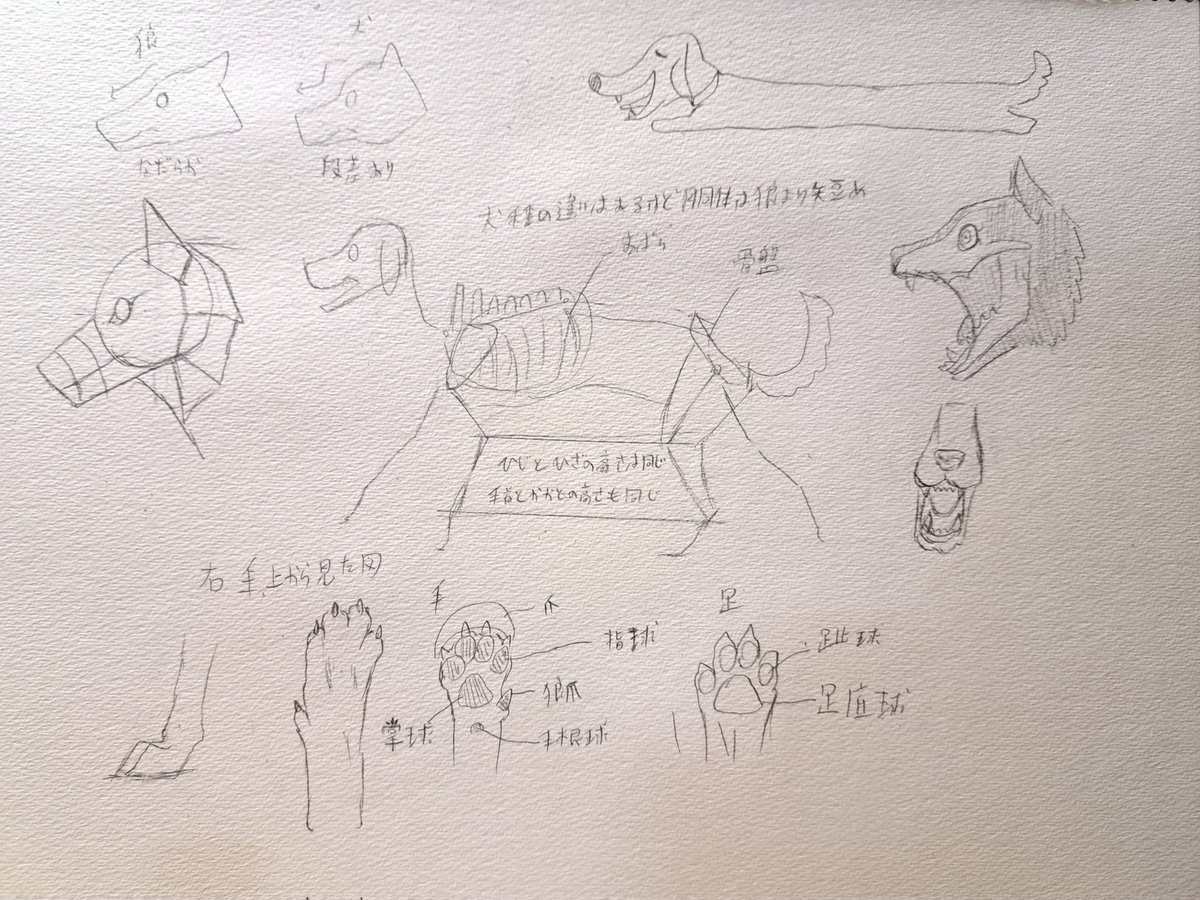 狼
犬
なだらか
段差あり
犬種の違いはあるけど胴体は狼より短め
あばら
骨盤
ひじとひざの高さは同じ
手首とかかとの高さも同じ
右手上から見た図
手
爪
指球
狼爪
掌球
手根球
足
趾球
足底球